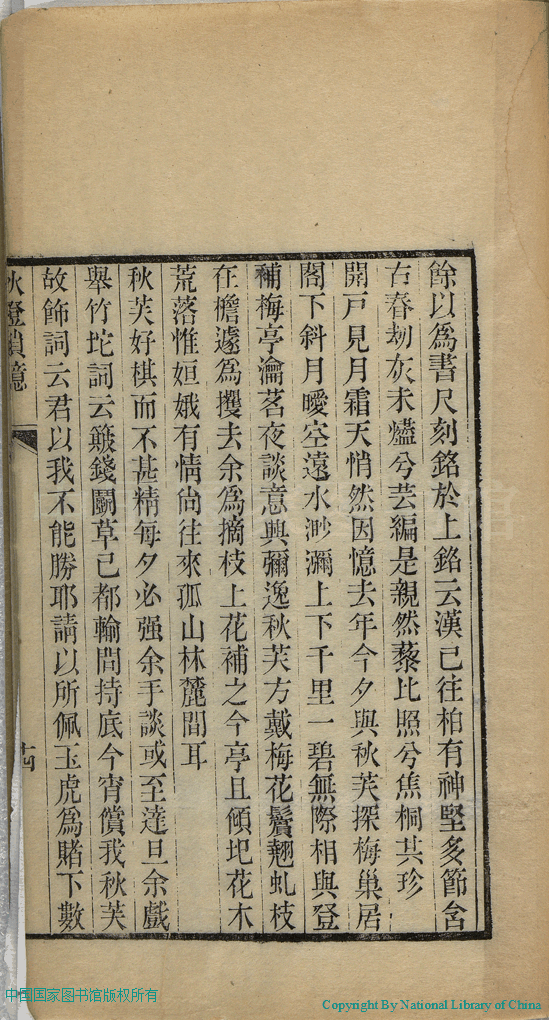 餘以為書尺刻銘於上銘云漢已往柏有神堅多節含
古春刼灰未燼兮芸編是親然藜比照兮焦桐共珍
開戸見月霜天悄然因憶去年今夕與秋芙探梅巢居
閣下斜月曖空遠水渺瀰上下千里一碧無際相與登
補梅亭瀹茗夜談意興彌逸秋芙方戴梅花鬢翹虬枝
在檐遽為攫去余為摘枝上花補之今亭且傾圮花木
荒落惟姮娥有情尚往來孤山林麓間耳
秋芙好棋而不甚精每夕必强余手談或至達旦余戲
舉竹坨詞云簸錢鬭草已都輸問持底今宵償我秋芙
故飾詞云君以我不能勝耶請以所佩玉虎為賭下數
秋鐙瑣憶
十四
中国国家图书馆版权所有
Copyright By National Library of China